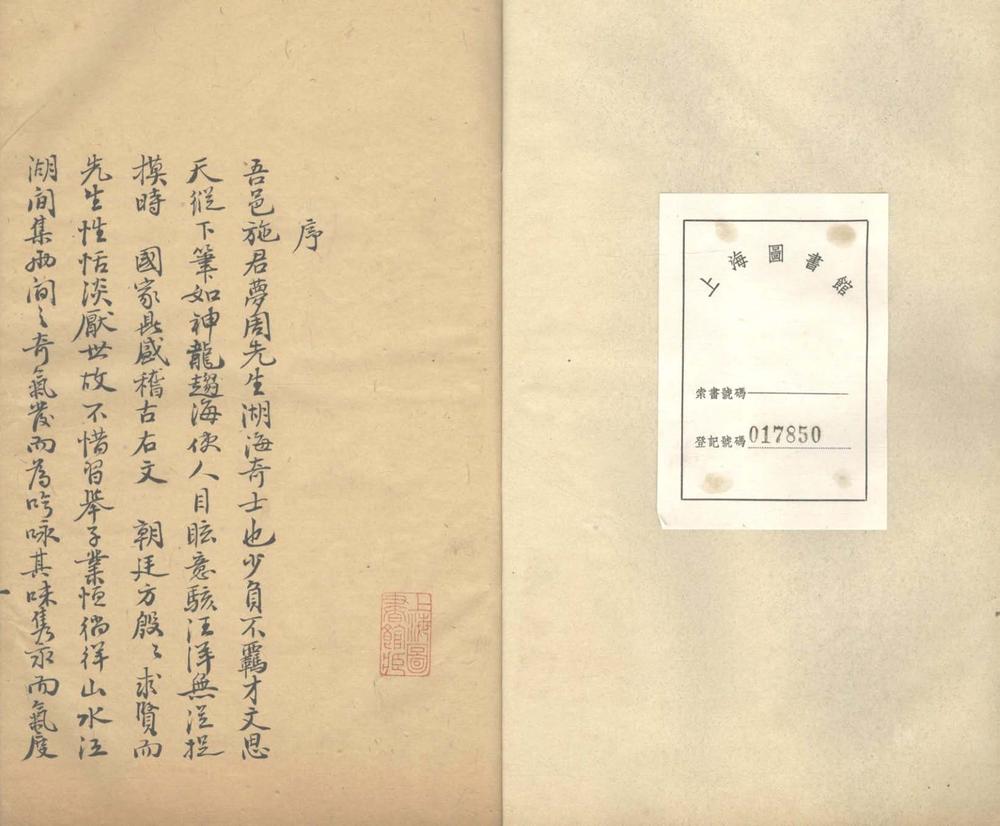 上海圖書館
索書號碼
登記號碼 017850
序
吾邑施君夢周先生湖海奇士也少負不羈才文思
天縱下筆如神龍趨海使人目眩意駭汪洋無從捉
摸時 國家長盛稽古右文 朝廷方殷〻求賢而
先生性恬淡厭世故不惜習舉子業恒徜徉山水江
湖间集兩间之奇氣發而為吟咏其味雋永而氣度
上海圖書館藏